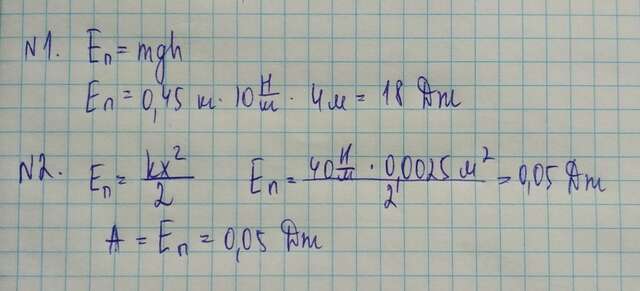 N1. Eп = mgh
Eп = 0,45 кг · 10 Н/кг · 4 м = 18 Дж
N2. Eп = kx²/2 Eп = 40 Н/м · 0,0025 м²/2 = 0,05 Дж
A = Eп = 0,05 Дж